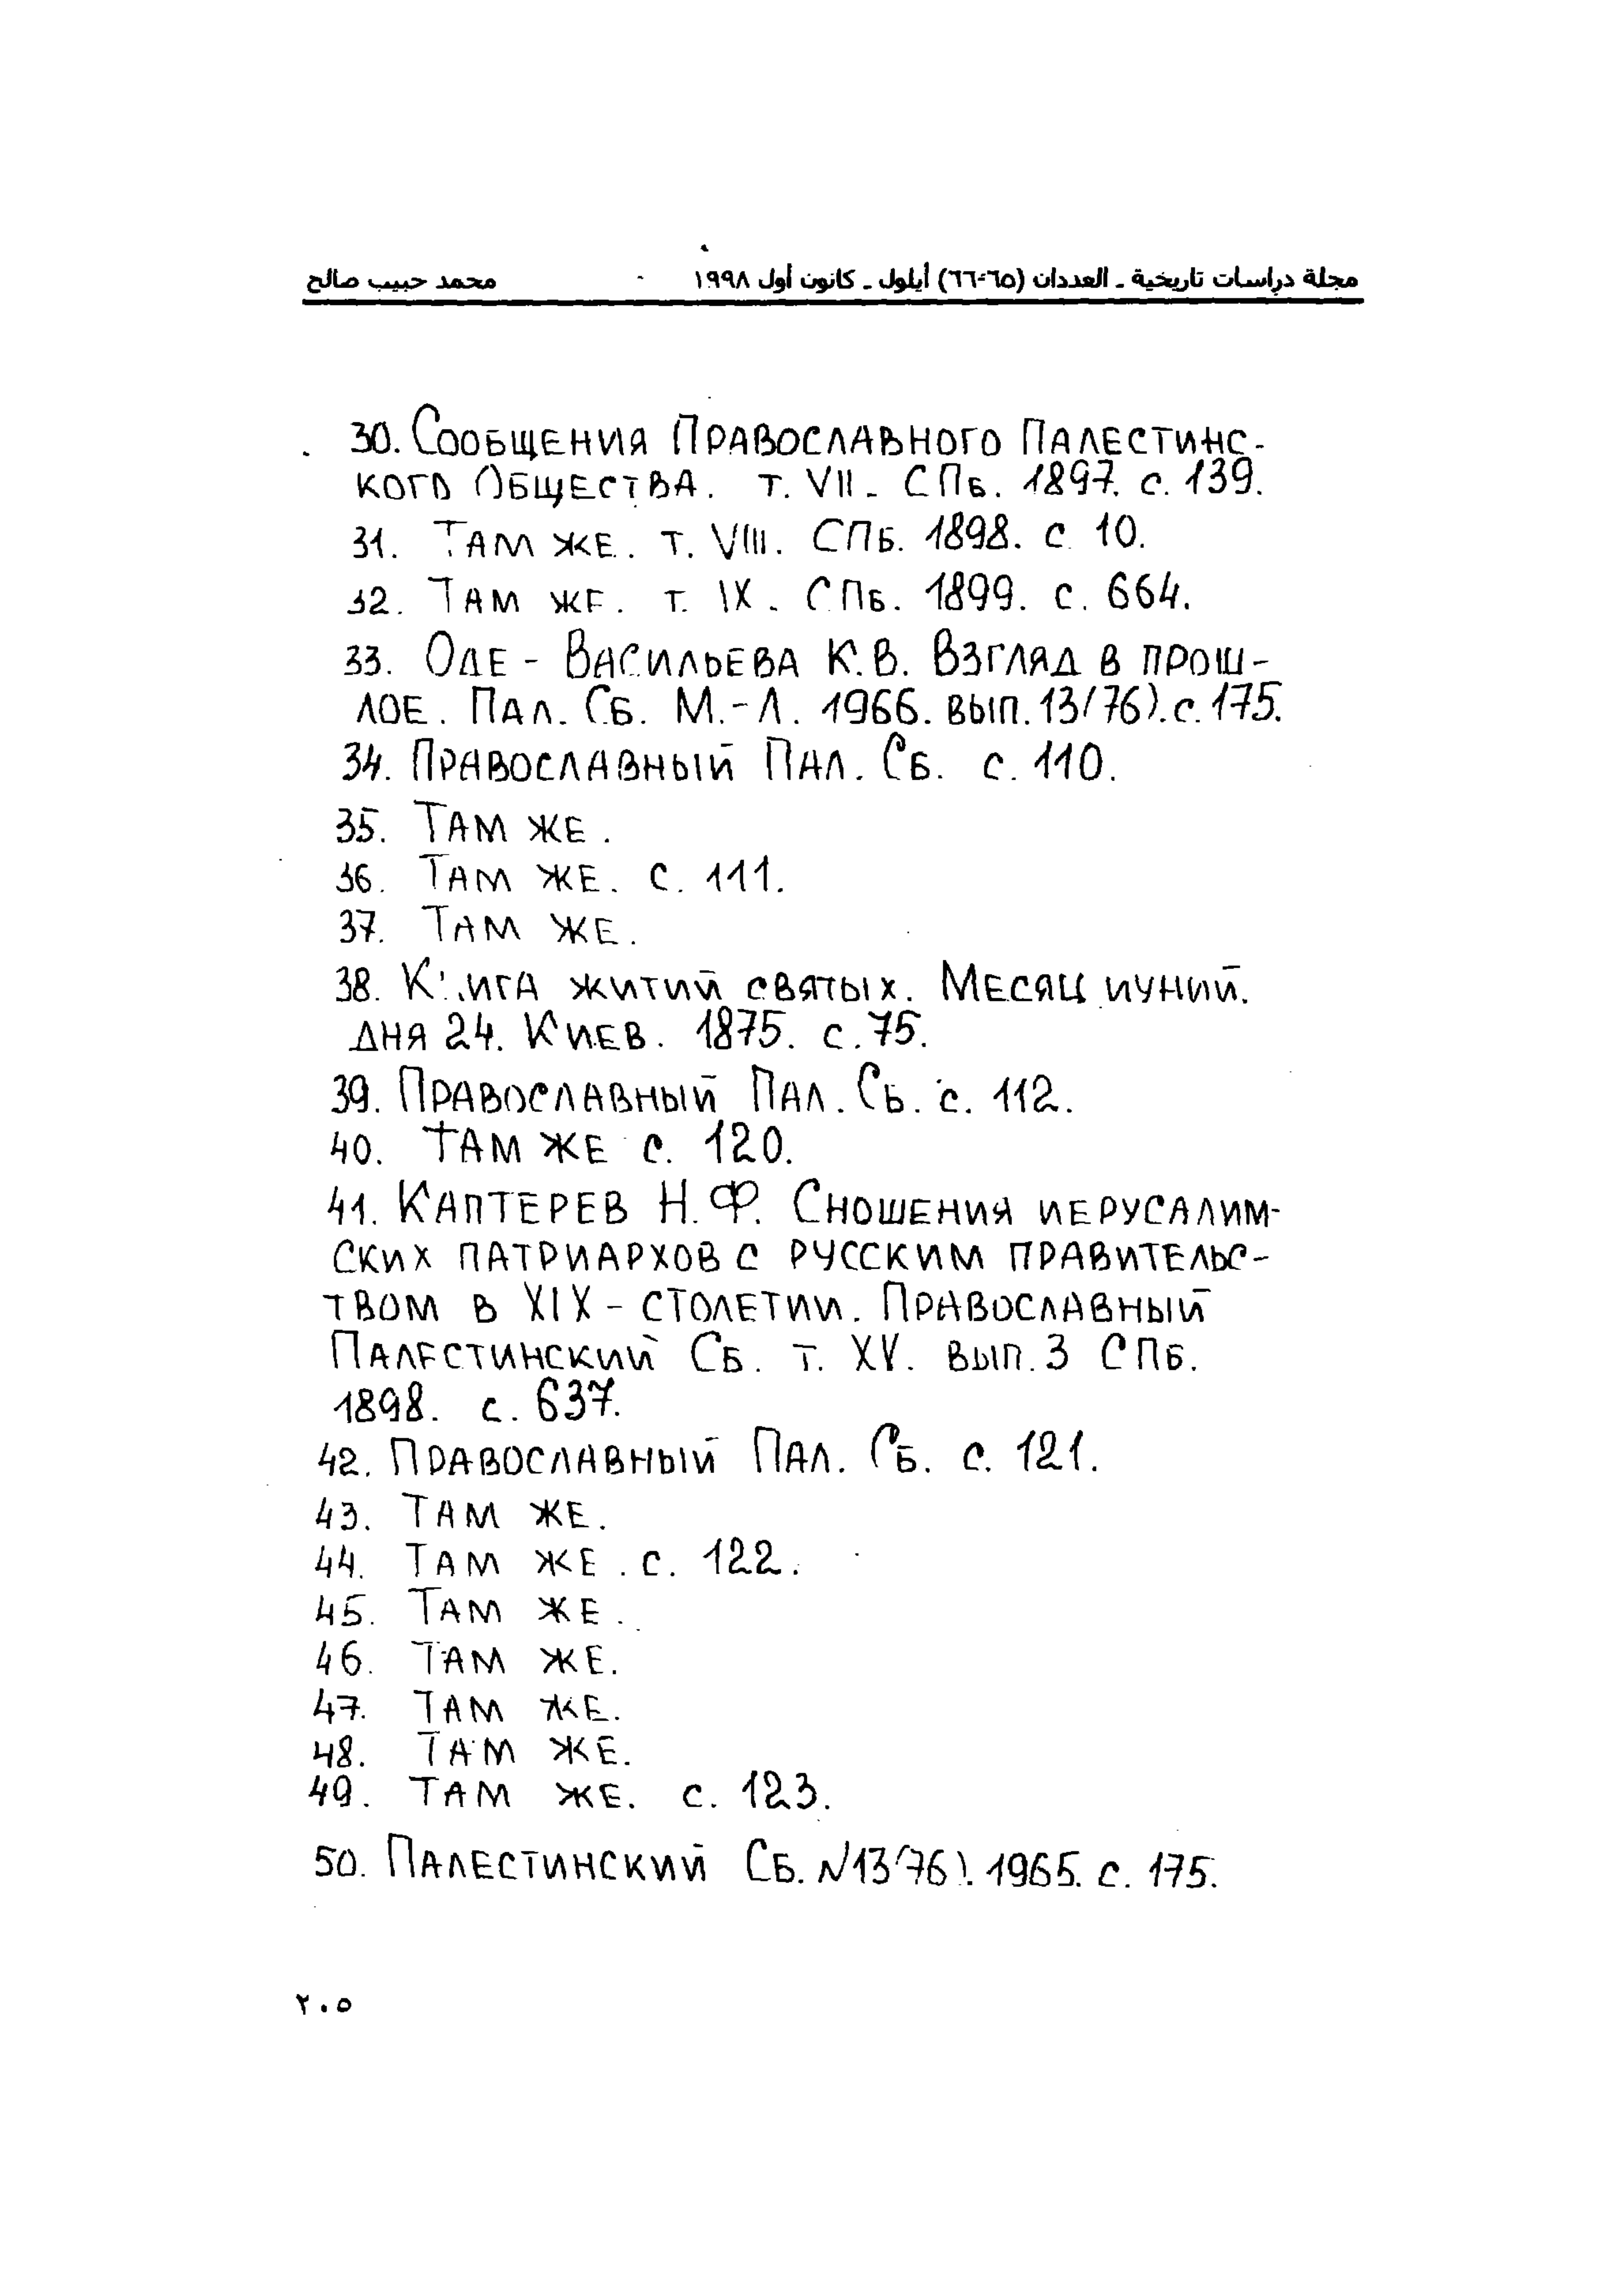 مجلة دراسات تاريخية ـ العددان (٦٥-٦٦) أيلول ـ كانون أول ١٩٩٨ محمد حبيب صالح
30. Сообщения Православного Палестинс-
кого Общества. т. VII. СПб. 1897. с. 139.
31. Там же. т. VIII. СПб. 1898. с 10.
32. Там же. т. IX. СПб. 1899. с. 664.
33. Оде - Васильева К.В. Взгляд в прош-
лое. Пал. Сб. М.-Л. 1966. вып. 13/76). с. 175.
34. Православный Пал. Сб. с. 110.
35. Там же.
36. Там же. с. 111.
37. Там же.
38. Книга житий святых. Месяц иуний.
дня 24. Киев. 1875. с. 75.
39. Православный Пал. Сб. с. 112.
40. Там же с. 120.
41. Каптерев Н.Ф. Сношения иерусалим-
ских патриархов с русским правительс-
твом в XIX - столетии. Православный
Палестинский Сб. т. XV. вып. 3 СПб.
1898. с. 637.
42. Православный Пал. Сб. с. 121.
43. Там же.
44. Там же. с. 122.
45. Там же.
46. Там же.
47. Там же.
48. Там же.
49. Там же. с. 123.
50. Палестинский Сб. N13(76). 1965. с. 175.
٢٠٥